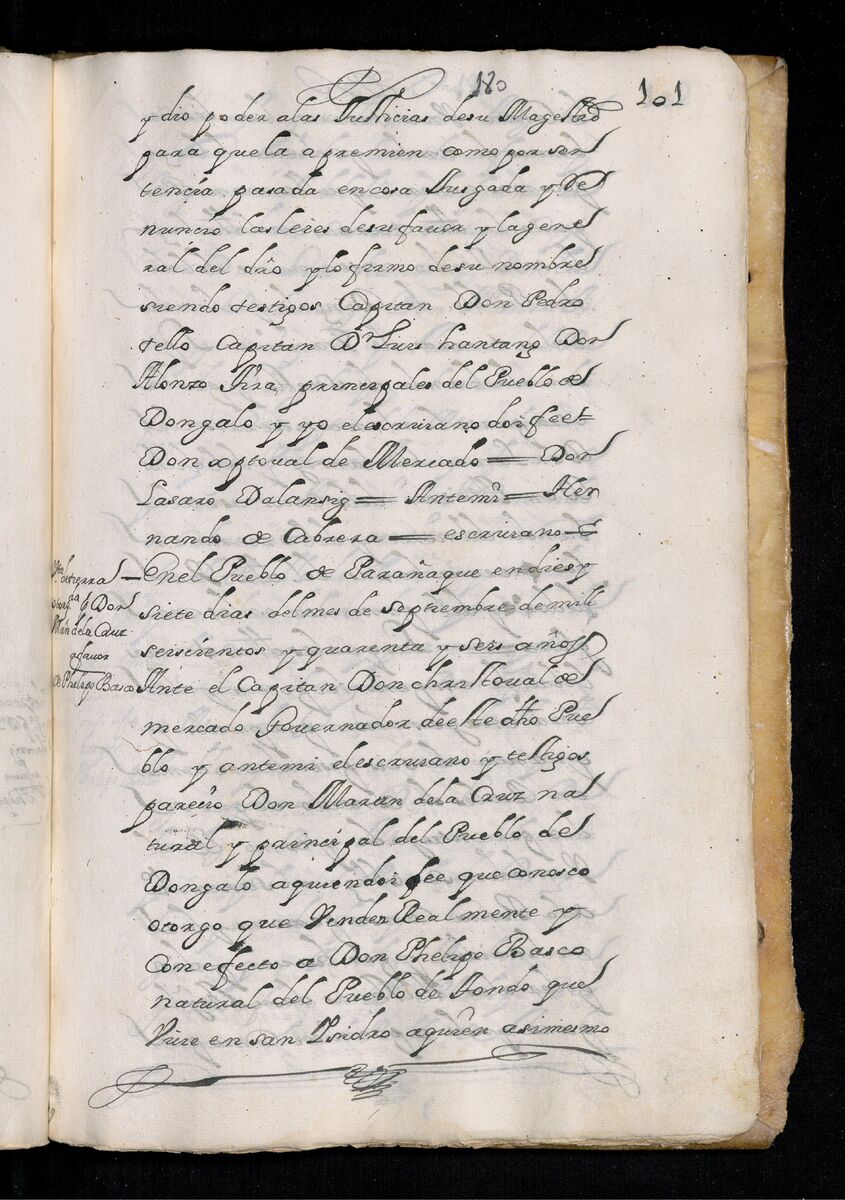 180
101
y dio poder alas Justicias desu Magestad
para quela apremien como por sen
tencia pasada encosa Jusgada y Re
nuncio lasleies desufauor y lagene
ral del dro ylofirmo desu nombre
siendo testigos Capitan Don Pedro
tello Capitan Dn Luis hantang Don
Alonzo Pira principales del Pueblo de
Dongalo y yo elescriuano doi feet
Don xptoual de Mercado = Don
Lasaro Dalansig = Antemi = Her
nando de Cabrera = escriuano =
Vta detierra
otorgda Don
Mrn dela Cruz
afauor
de Phelipo Basco
Enel Pueblo de Parañaque endies y
siete dias delmes de septiembre de mill
seiscientos y quarenta y seis años
Ante el Capitan Don christoual de
mercado Gouernador deeste dho Pue
blo y antemi elescriuano y testigos
parecio Don Martin dela Cruz na
tural y principal del Pueblo de
Dongalo aquiendoi fee que conosco
otorgo que Vende Realmente y
Con efecto a Don Phelipo Basco
natural del Pueblo de tondo que
Viue en san Isidro aquien asimesmo